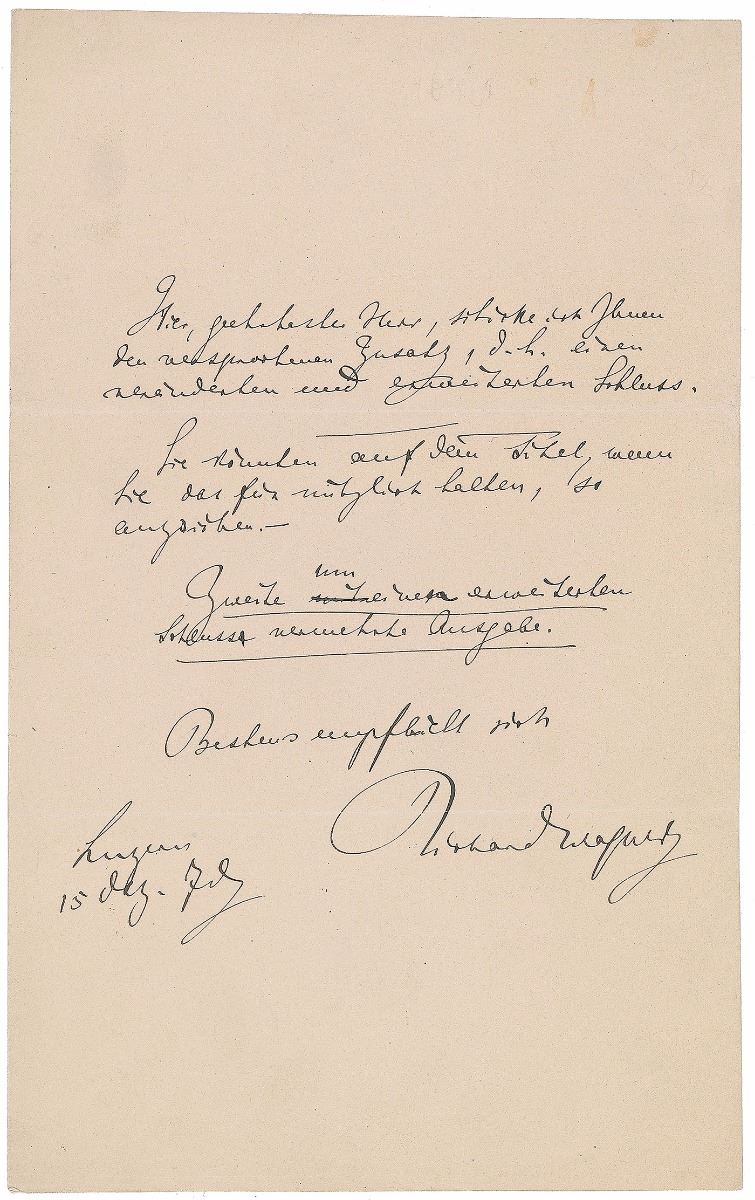 Hier, geehrtester Herr, schicke ich Ihnen
den versprochenen Zusatz, d. h. einen
veränderten und erweiterten Schluss.
Sie könnten auf dem Titel, wenn
Sie das für nützlich halten, so
anzeichnen.—
um
Zweite mit einen erweiterten
Schluss vermehrte Ausgabe.
Bestens empfiehlt sich
Richard Wagner
Luzern
15 Dez.